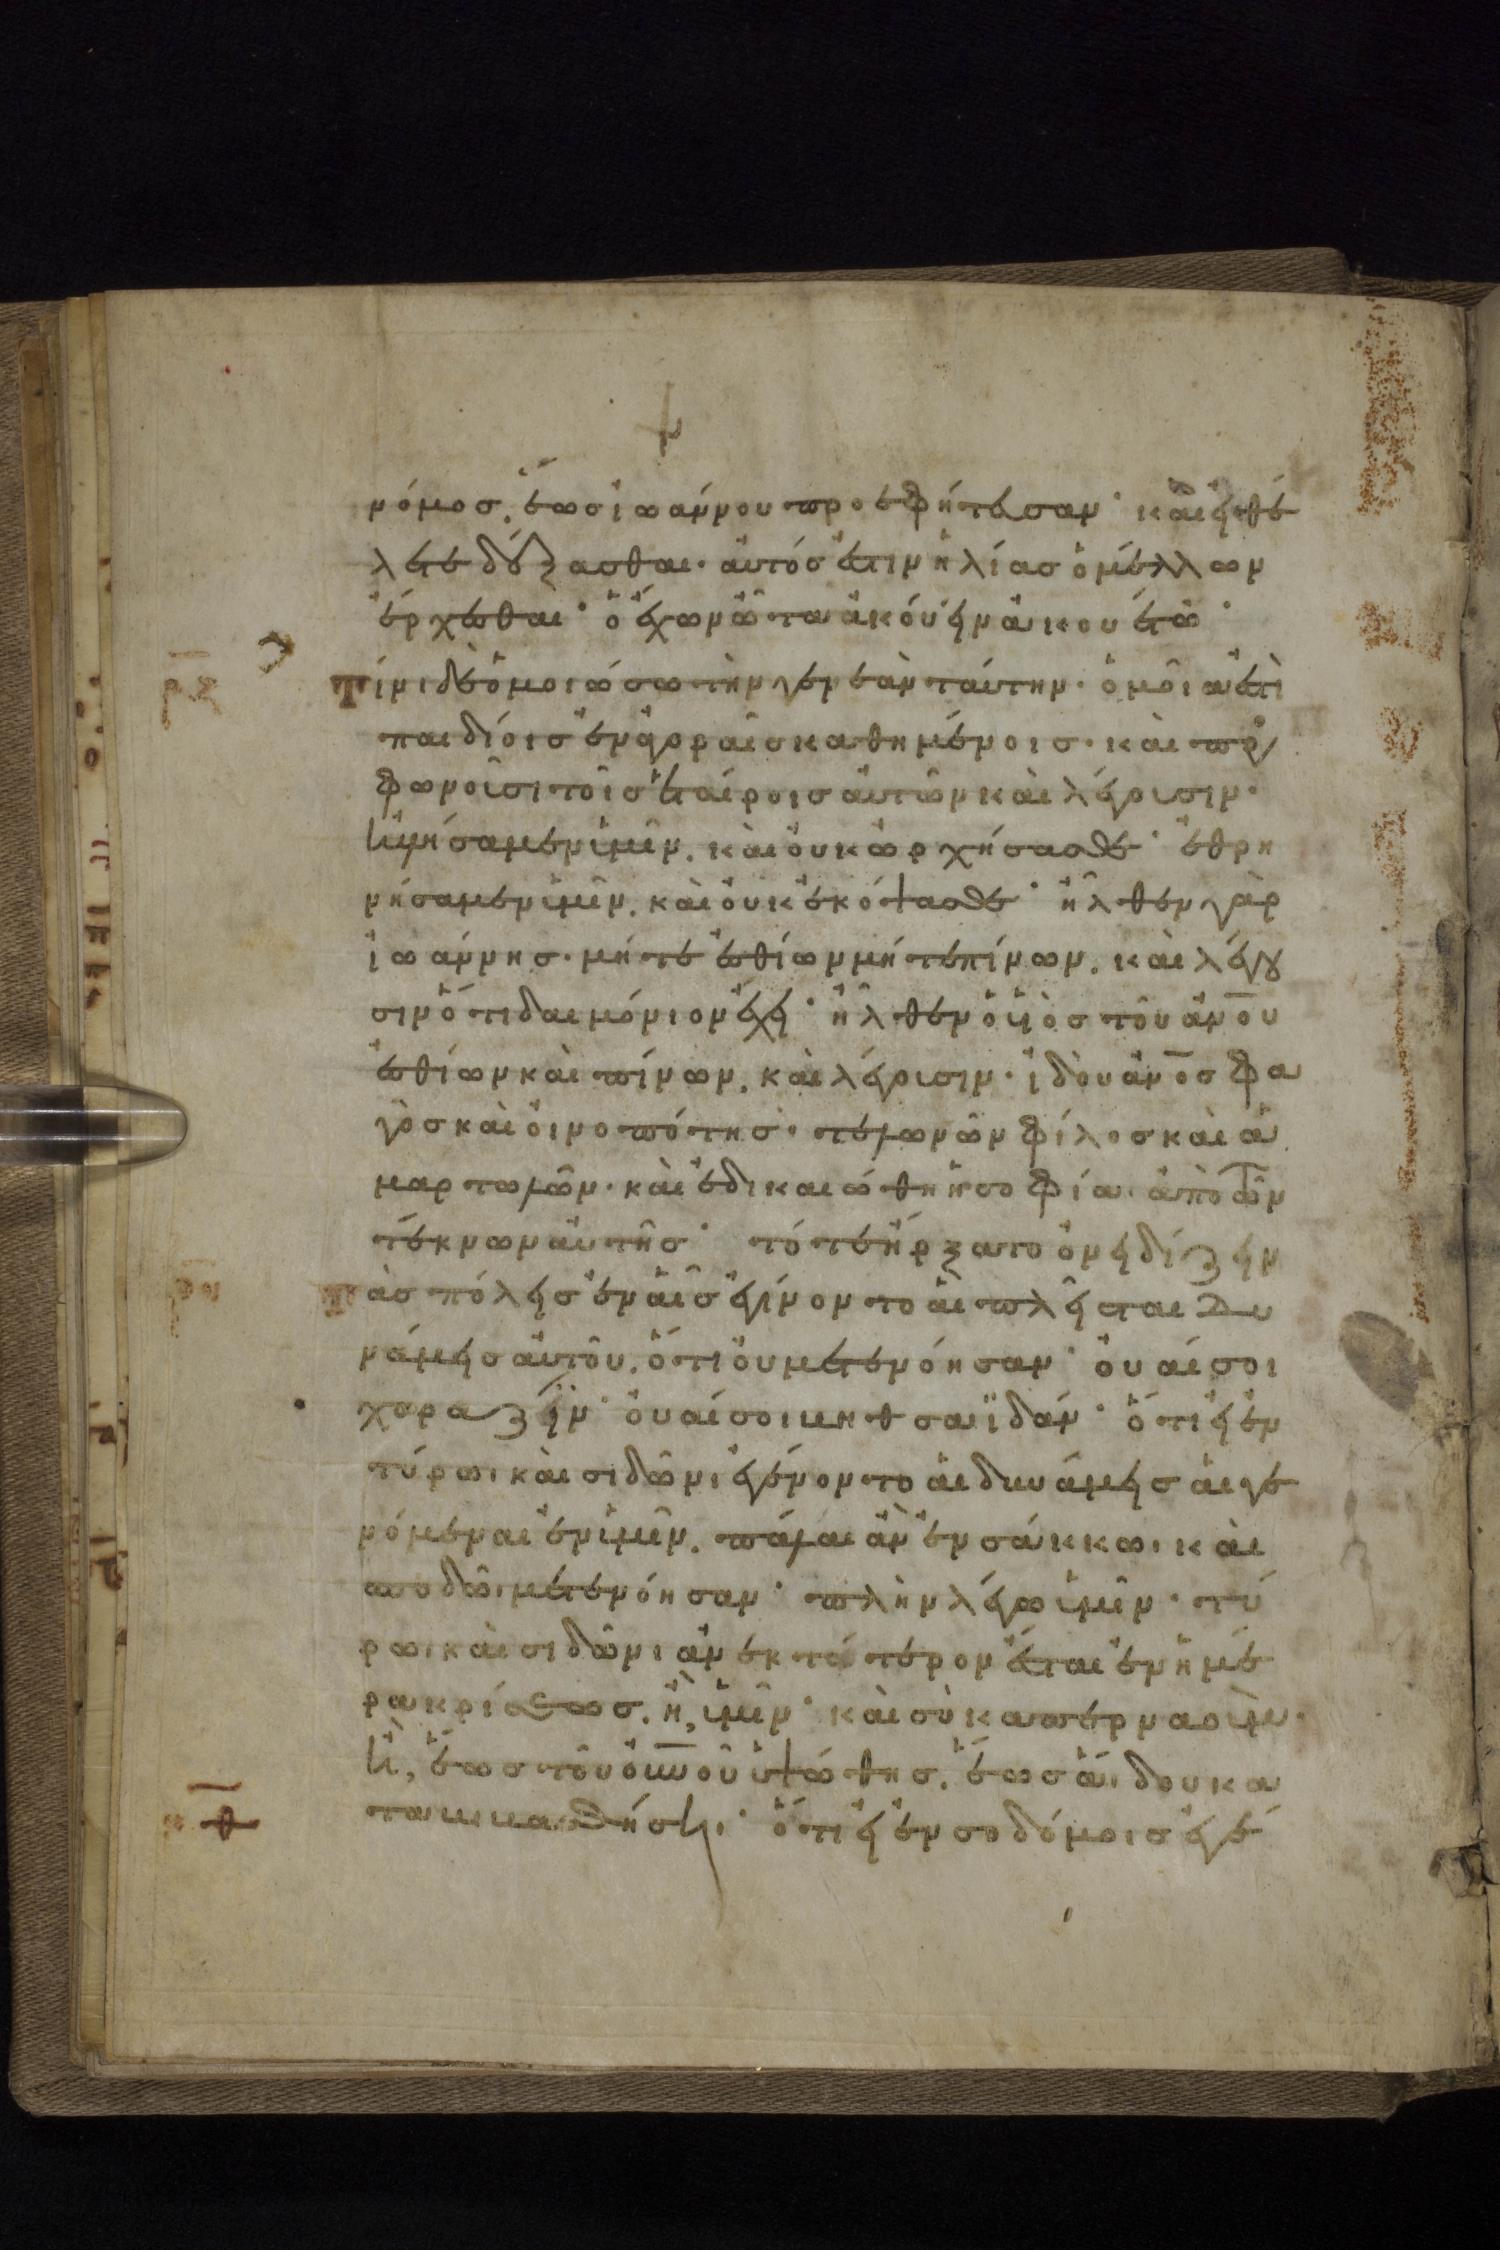 νόμοσ, ἕωσ ἰωάννου προεφήτευσαν· καὶ εἰ θέ
λετε δέξασθαι· αὐτόσ ἐστιν ἠλίασ ὁ μέλλων
ἔρχεσθαι· ὁ ἔχων ὦτα ἀκούειν ἀκουέτω·
Τίνι δὲ ὁμοιώσω τὴν γενεὰν ταύτην· ὁμοία ἐστὶ
παιδίοισ ἐν ἀγοραῖσ καθημένοισ· καὶ προσ
φωνοῦσι τοῖσ ἑταίροισ αὐτῶν καὶ λέγουσιν·
ηὐλήσαμεν ὑμῖν, καὶ οὐκ ὠρχήσασθε· ἐθρη
νήσαμεν ὑμῖν, καὶ οὐκ ἐκόψασθε· ἦλθεν γὰρ
ἰωάννησ· μήτε ἐσθίων μήτε πίνων, καὶ λέγου
σιν ὅτι δαιμόνιον ἔχει· ἦλθεν ὁ υἱὸσ τοῦ ἀνου
ἐσθίων καὶ πίνων, καὶ λέγουσιν· ἰδοὺ ἀνοσ φα
γὸσ καὶ οἰνοπότησ· τελωνῶν φίλοσ καὶ ἁ
μαρτωλῶν· καὶ ἐδικαιώθη ἡ σοφία ἀπὸ τῶν
τέκνων αὐτῆσ· τότε ἤρξατο ὀνειδίζειν
Τὰσ πόλεισ ἐν αἷσ ἐγένοντο αἱ πλεῖσται δυ
νάμεισ αὐτοῦ, ὅτι οὐ μετενόησαν· οὐαί σοι
χοραζεΐν· οὐαί σοι βηθσαϊδάν· ὅτι εἰ ἐν
τύρωι καὶ σιδῶνι ἐγένοντο αἱ δυνάμεισ αἱ γε
νόμεναι ἐν ὑμῖν, πάλαι ἂν ἐν σάκκωι καὶ
σποδῶι μετενόησαν· πλὴν λέγω ὑμῖν· τύ
ρωι καὶ σιδῶνι ἀνεκτότερον ἔσται ἐν ἡμέ
ρα κρίσεωσ, ἢ ὑμῖν· καὶ σὺ καπερναοὺμ·
ἡ, ἕωσ τοῦ οὐνοῦ ὑψώθησ, ἕωσ ἅιδου κα
ταβιβασθήσηι· ὅτι εἰ ἐν σοδόμοισ ἐγέ